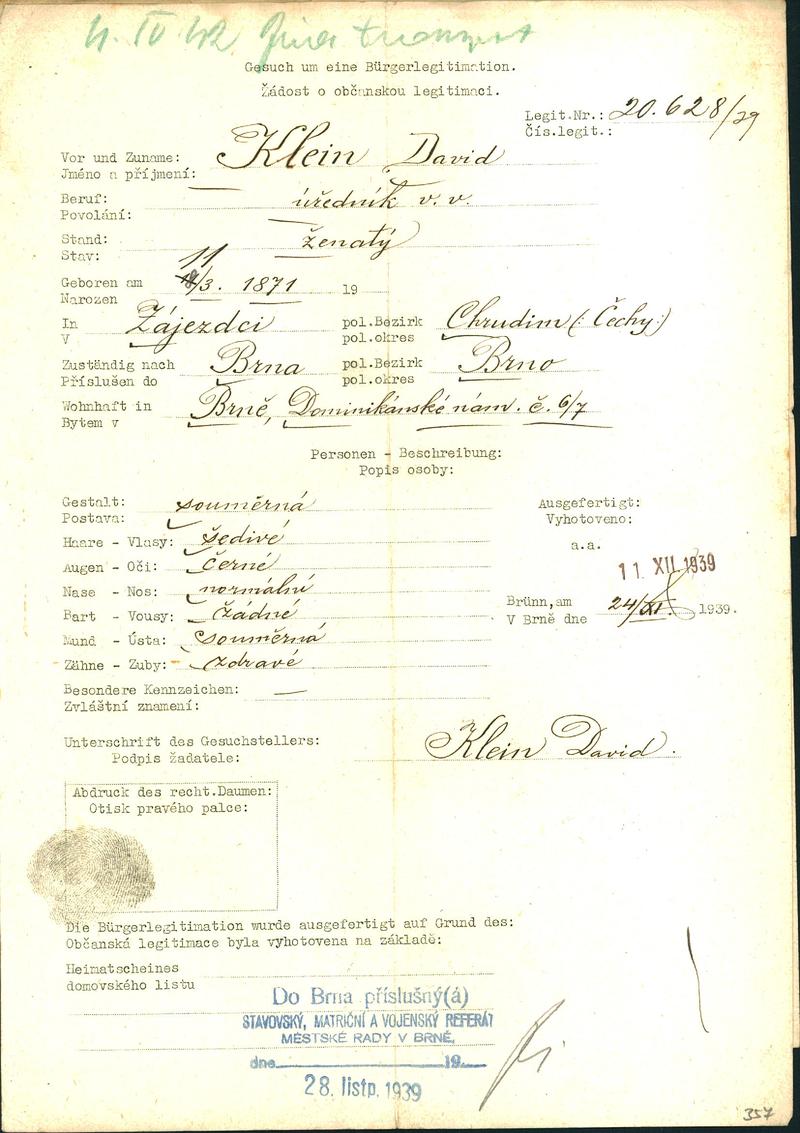 4. IV 42
Gesuch um eine Bürgerlegitimation.
Žádost o občanskou legitimaci.
Legit.Nr.: 20.628/39
Čís.legit.:
Vor und Zuname: Klein David
Jméno a příjmení:
Beruf: úředník v. v.
Povolání:
Stand: ženatý
Stav:
11
Geboren am /3. 1871 19
Narozen
In Zájezdci pol.Bezirk Chrudim (: Čechy:)
V pol.okres
Zuständig nach Brna pol.Bezirk Brno
Příslušen do pol.okres
Wohnhaft in Brně, Dominikánské nám. č. 6/7
Bytem v
Personen - Beschreibung:
Popis osoby:
Gestalt: souměrná
Postava:
Haare - Vlasy: šedivé
Augen - Oči: černé
Nase - Nos: normální
Bart - Vousy: žádné
Mund - Ústa: souměrná
Zähne - Zuby: zdravé
Besondere Kennzeichen: —
Zvláštní znamení:
Ausgefertigt:
Vyhotoveno:
a.a.
11 XII 1939
Brünn,am 24/XI. 1939.
V Brně dne
Unterschrift des Gesuchstellers: Klein David.
Podpis žadatele:
Abdruck des recht.Daumen:
Otisk pravého palce:
Die Bürgerlegitimation wurde ausgefertigt auf Grund des:
Občanská legitimace byla vyhotovena na základě:
Heimatscheines
domovského listu
Do Brna příslušný(á)
STAVOVSKÝ, MATRIČNÍ A VOJENSKÝ REFERÁT
MĚSTSKÉ RADY V BRNĚ,
dne 19
28. listp. 1939
357